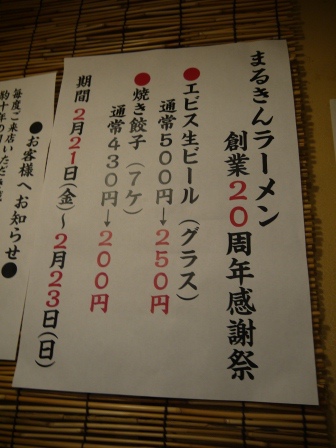 まるきんラーメン
創業20周年感謝祭
●エビス生ビール（グラス）
通常500円→250円
●焼き餃子（7ケ）
通常430円→200円
期間 2月21日（金）～2月23日（日）
●お客様へお知らせ●
毎度ご来店いただき